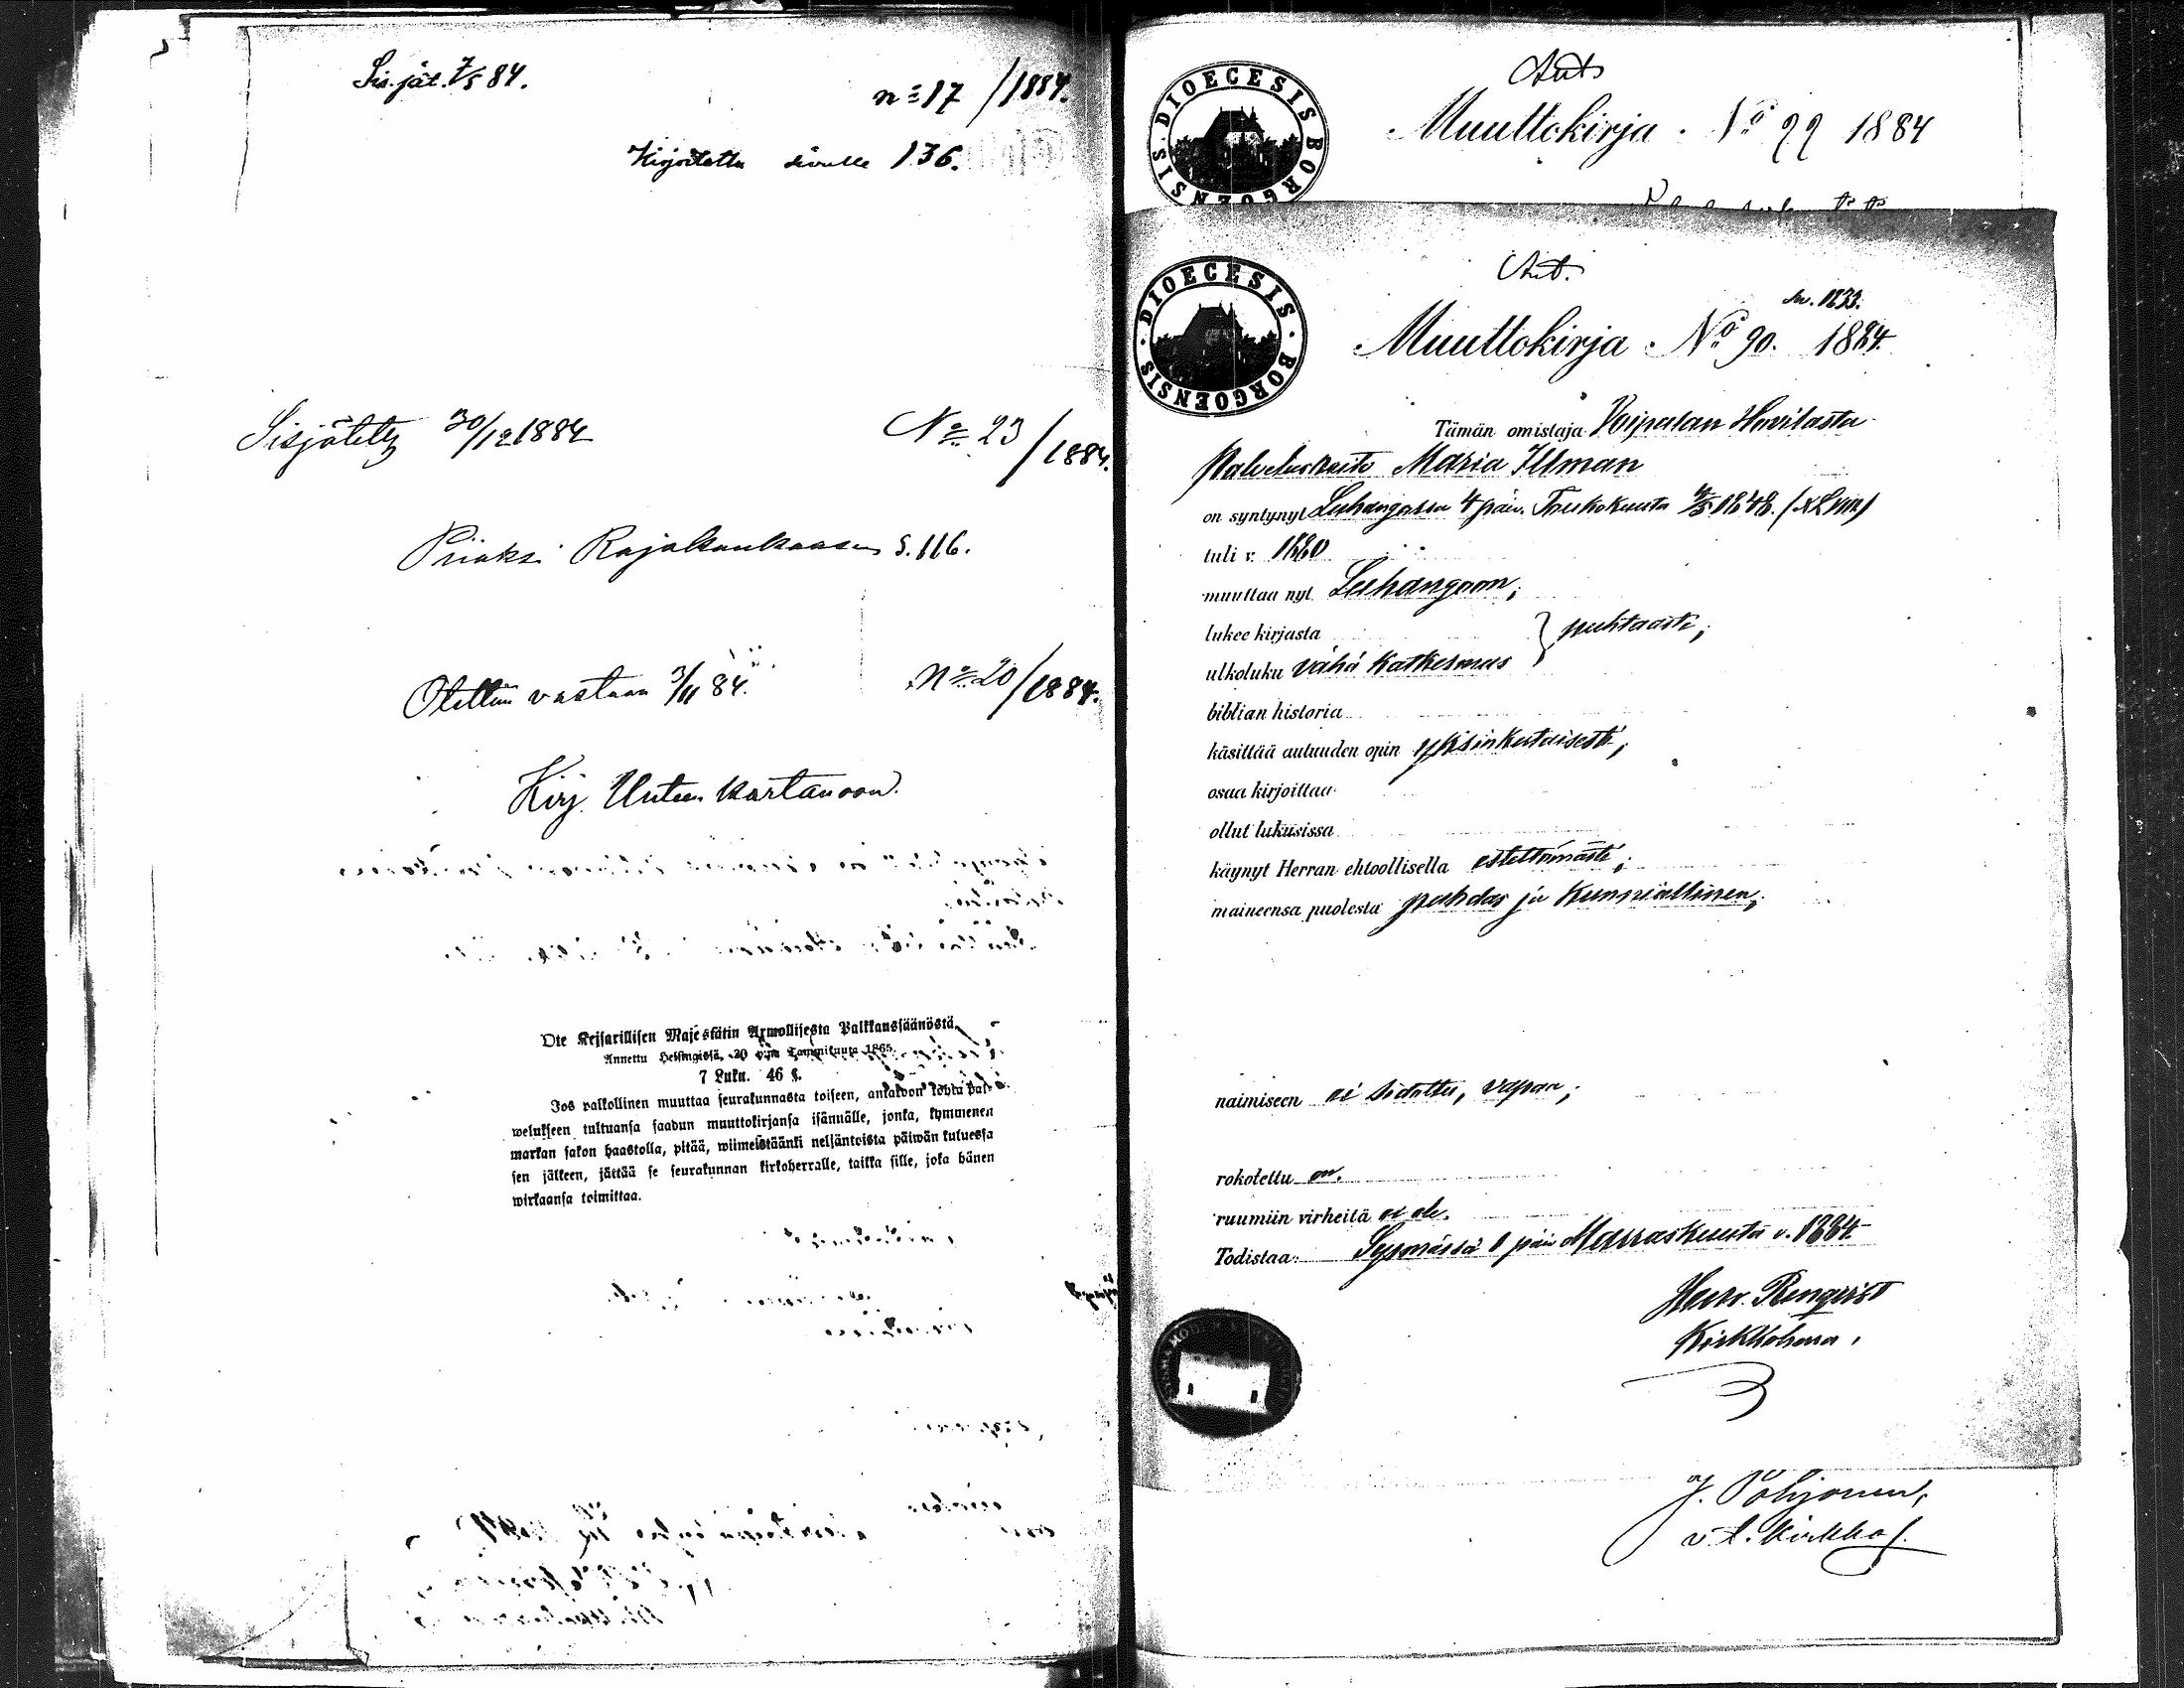 Sis. jät. 7/5 84.
No 17 / 1884.
Kirjoitettu sivulle 136.
Sisjätetty 30/12 1884
No 23 / 1884.
Piiaksi Rajalkankaasen S. 116.
Otettiin vastaan 3/11 84.
No 20 / 1884.
Kirj. Uuteen kartanoon.
Ote Keisarillisen Majestätin Armollisesta Palkkaussäänöstä,
Annettu Helsingissä, 30 p:nä Tammikuuta 1865.
7 Luku. 46 §.
Jos palkollinen muuttaa seurakunnasta toiseen, antakoon kohta pal-
welukseen tultuansa saadun muuttokirjansa isännälle, jonka, kymmenen
markan sakon haastolla, pitää, wiimeistäänki neljäntoista päiwän kuluessa
sen jälkeen, jättää se seurakunnan kirkoherralle, taikka sille, joka hänen
wirkaansa toimittaa.
DIOECESIS BORGOENSIS
Ant.
Muuttokirja. No 22 1884
DIOECESIS · BORGOENSIS ·
Ant.
Muuttokirja No 90. 1884.
Tämän omistaja Voipalan Hovilasta
Palveluspiika Maria Illman
on syntynyt Luhangassa 4 päiv. Toukokuuta 4/5 1848. (XLVIII)
tuli v. 1880
muuttaa nyt Luhangoon;
lukee kirjasta } puhtaasti;
ulkoluku vähä katkesmus
biblian historia
käsittää autuuden opin yksinkertaisesti;
osaa kirjoittaa
ollut lukusissa
käynyt Herran ehtoollisella estettömästi;
maineensa puolesta puhdas ja kunniallinen;
naimiseen ei sidottu, vapaa;
rokotettu on.
ruumiin virheitä ei ole.
Todistaa: Sysmässä 1 päiv Marraskuusta v. 1884.
Renqvist
Kirkkoherra.
J. Pohjonen,
v. t. Kirkkoh.